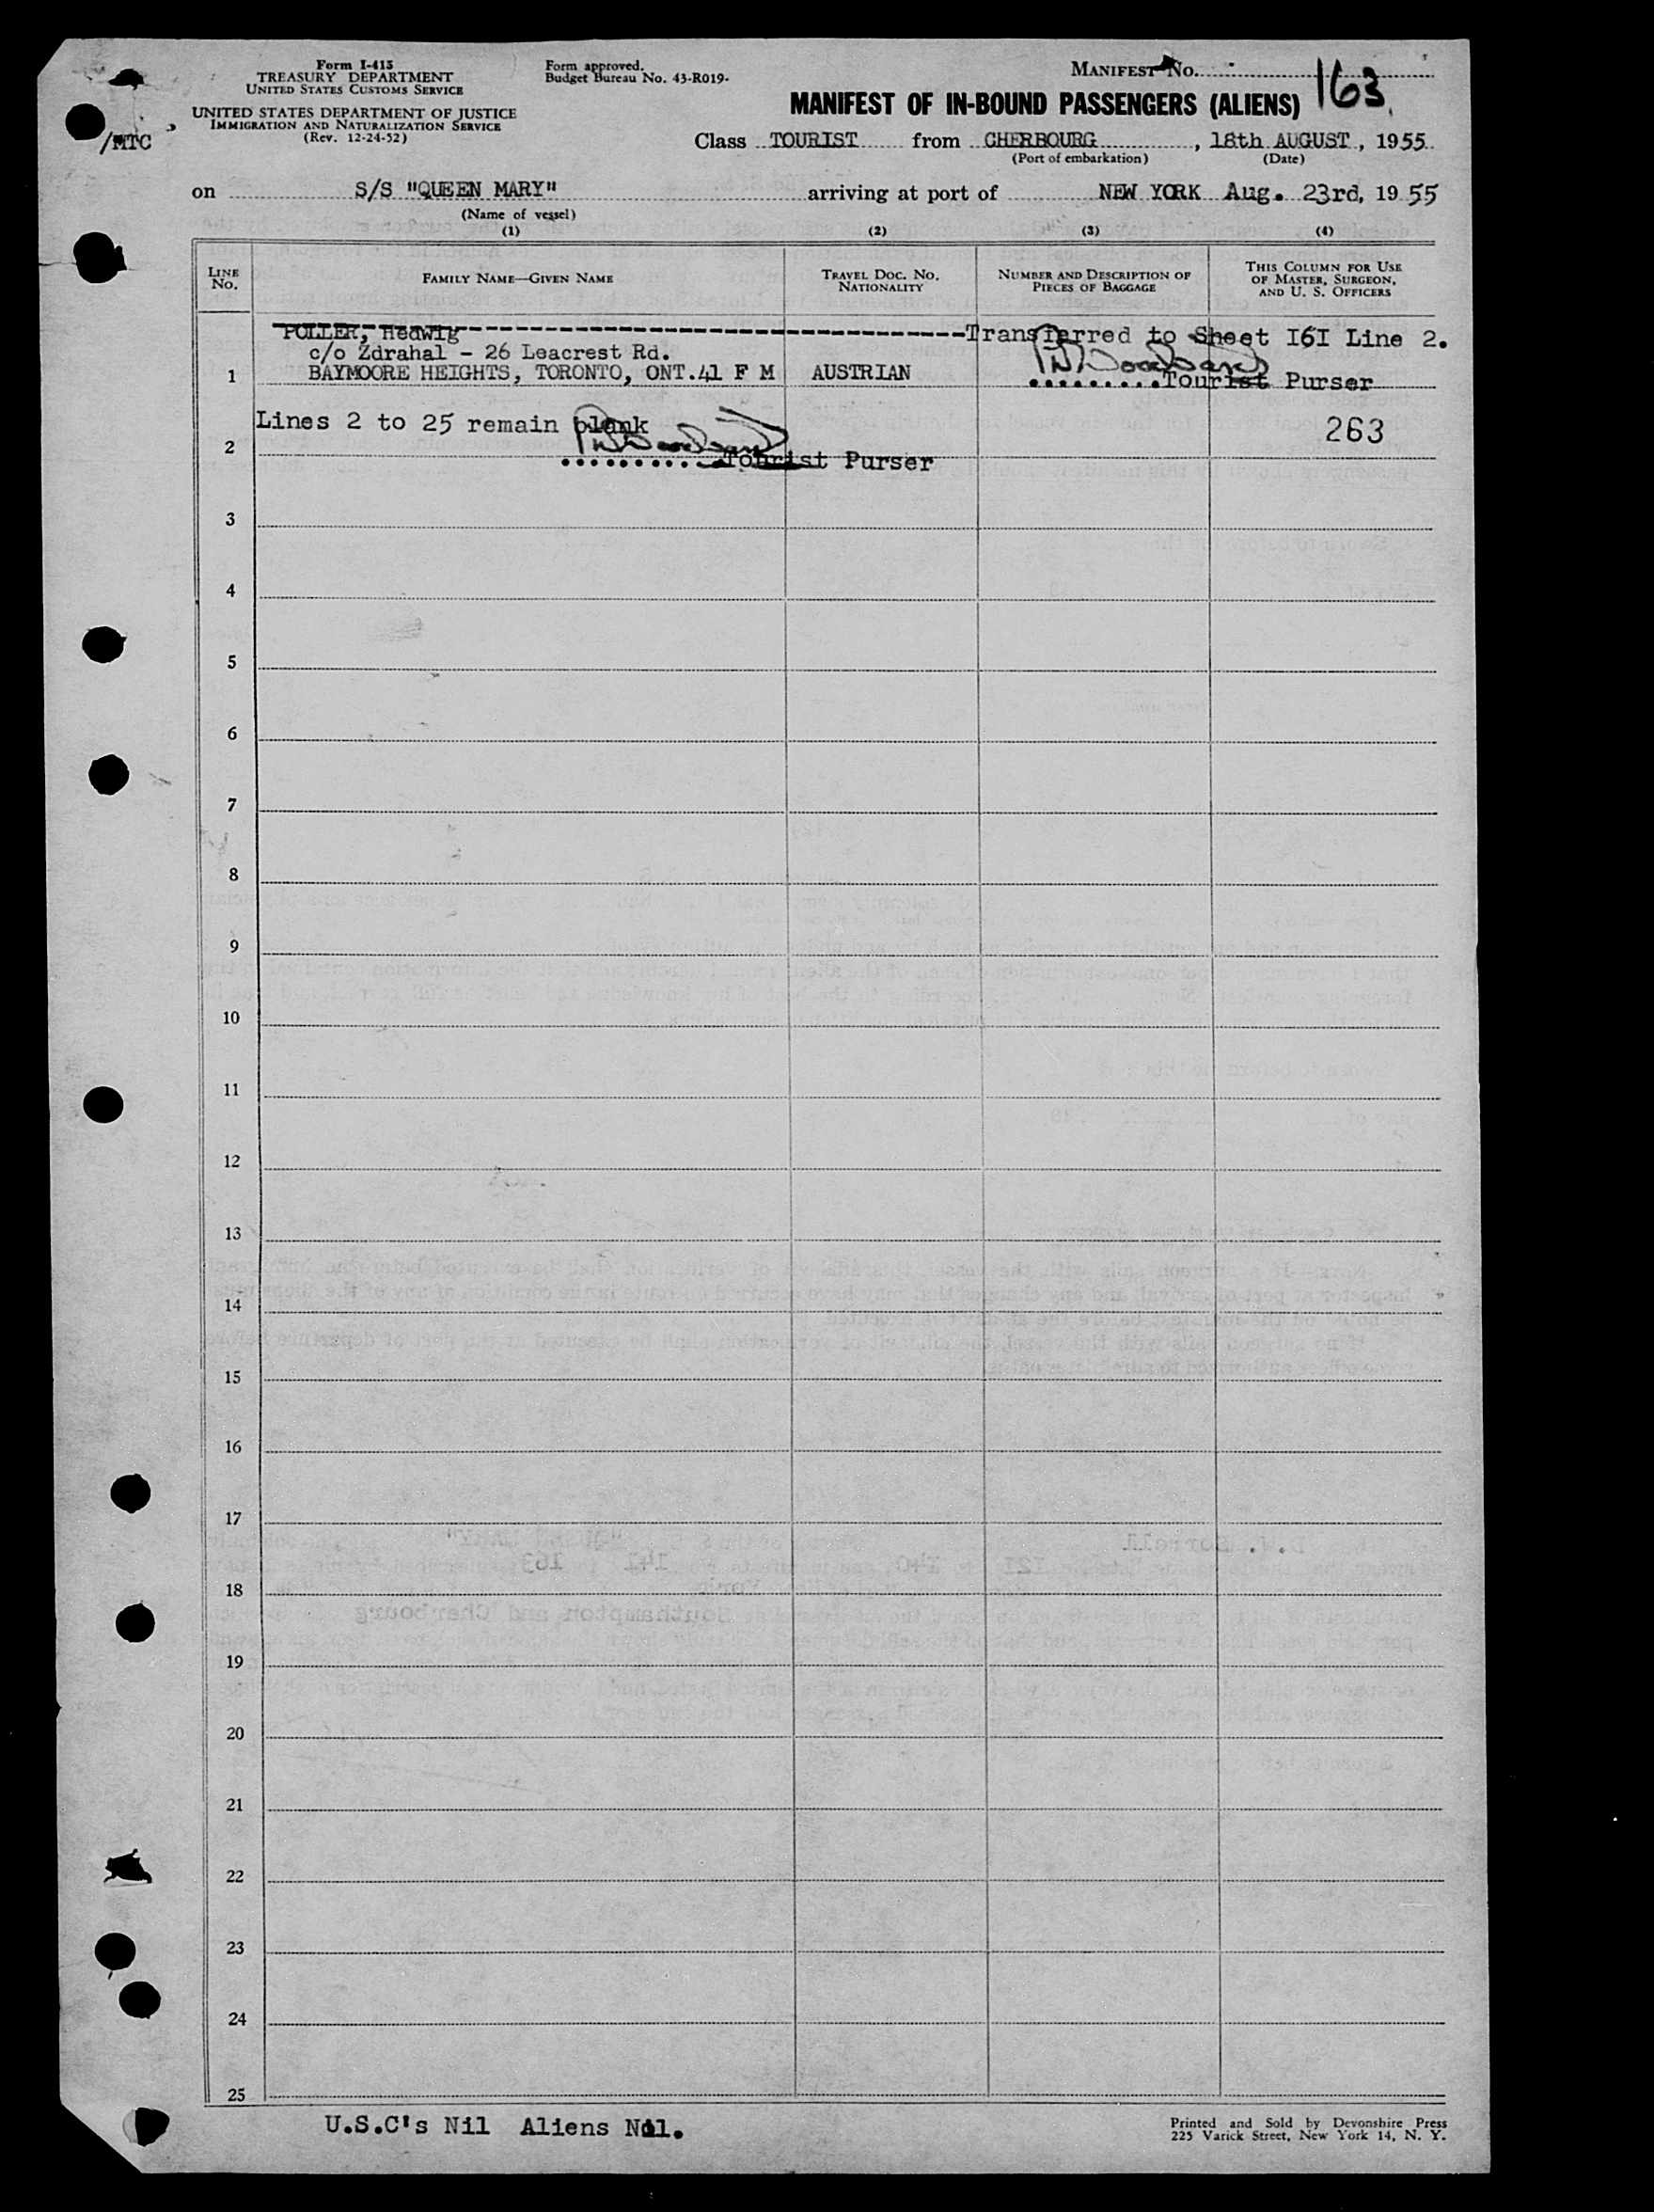 Form I-415
TREASURY DEPARTMENT
UNITED STATES CUSTOMS SERVICE
UNITED STATES DEPARTMENT OF JUSTICE
IMMIGRATION AND NATURALIZATION SERVICE
(Rev. 12-24-52)
/MTC
Form approved.
Budget Bureau No. 43-R019-
MANIFEST No. 163
MANIFEST OF IN-BOUND PASSENGERS (ALIENS)
Class TOURIST from CHERBOURG, 18th AUGUST, 1955
(Port of embarkation) (Date)
on S/S "QUEEN MARY" arriving at port of NEW YORK Aug. 23rd, 1955
(Name of vessel)
(1) (2) (3) (4)
LINE No. FAMILY NAME—GIVEN NAME TRAVEL DOC. No. NATIONALITY NUMBER AND DESCRIPTION OF PIECES OF BAGGAGE THIS COLUMN FOR USE OF MASTER, SURGEON, AND U. S. OFFICERS
POLLER, Hedwig Transferred to Sheet I6I Line 2.
c/o Zdrahal - 26 Leacrest Rd.
1 BAYMOORE HEIGHTS, TORONTO, ONT. 41 F M AUSTRIAN Tourist Purser
Lines 2 to 25 remain blank 263
2
Tourist Purser
3
4
5
6
7
8
9
10
11
12
13
14
15
16
17
18
19
20
21
22
23
24
25
U.S.C's Nil Aliens Nil.
Printed and Sold by Devonshire Press
225 Varick Street, New York 14, N. Y.